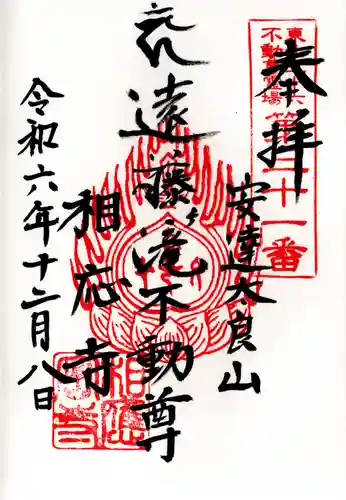 奉拝
東北三十六
不動尊霊場
第二十一番
安達太良山
遠藤滝不動尊
相応寺
令和六年十二月八日
相應